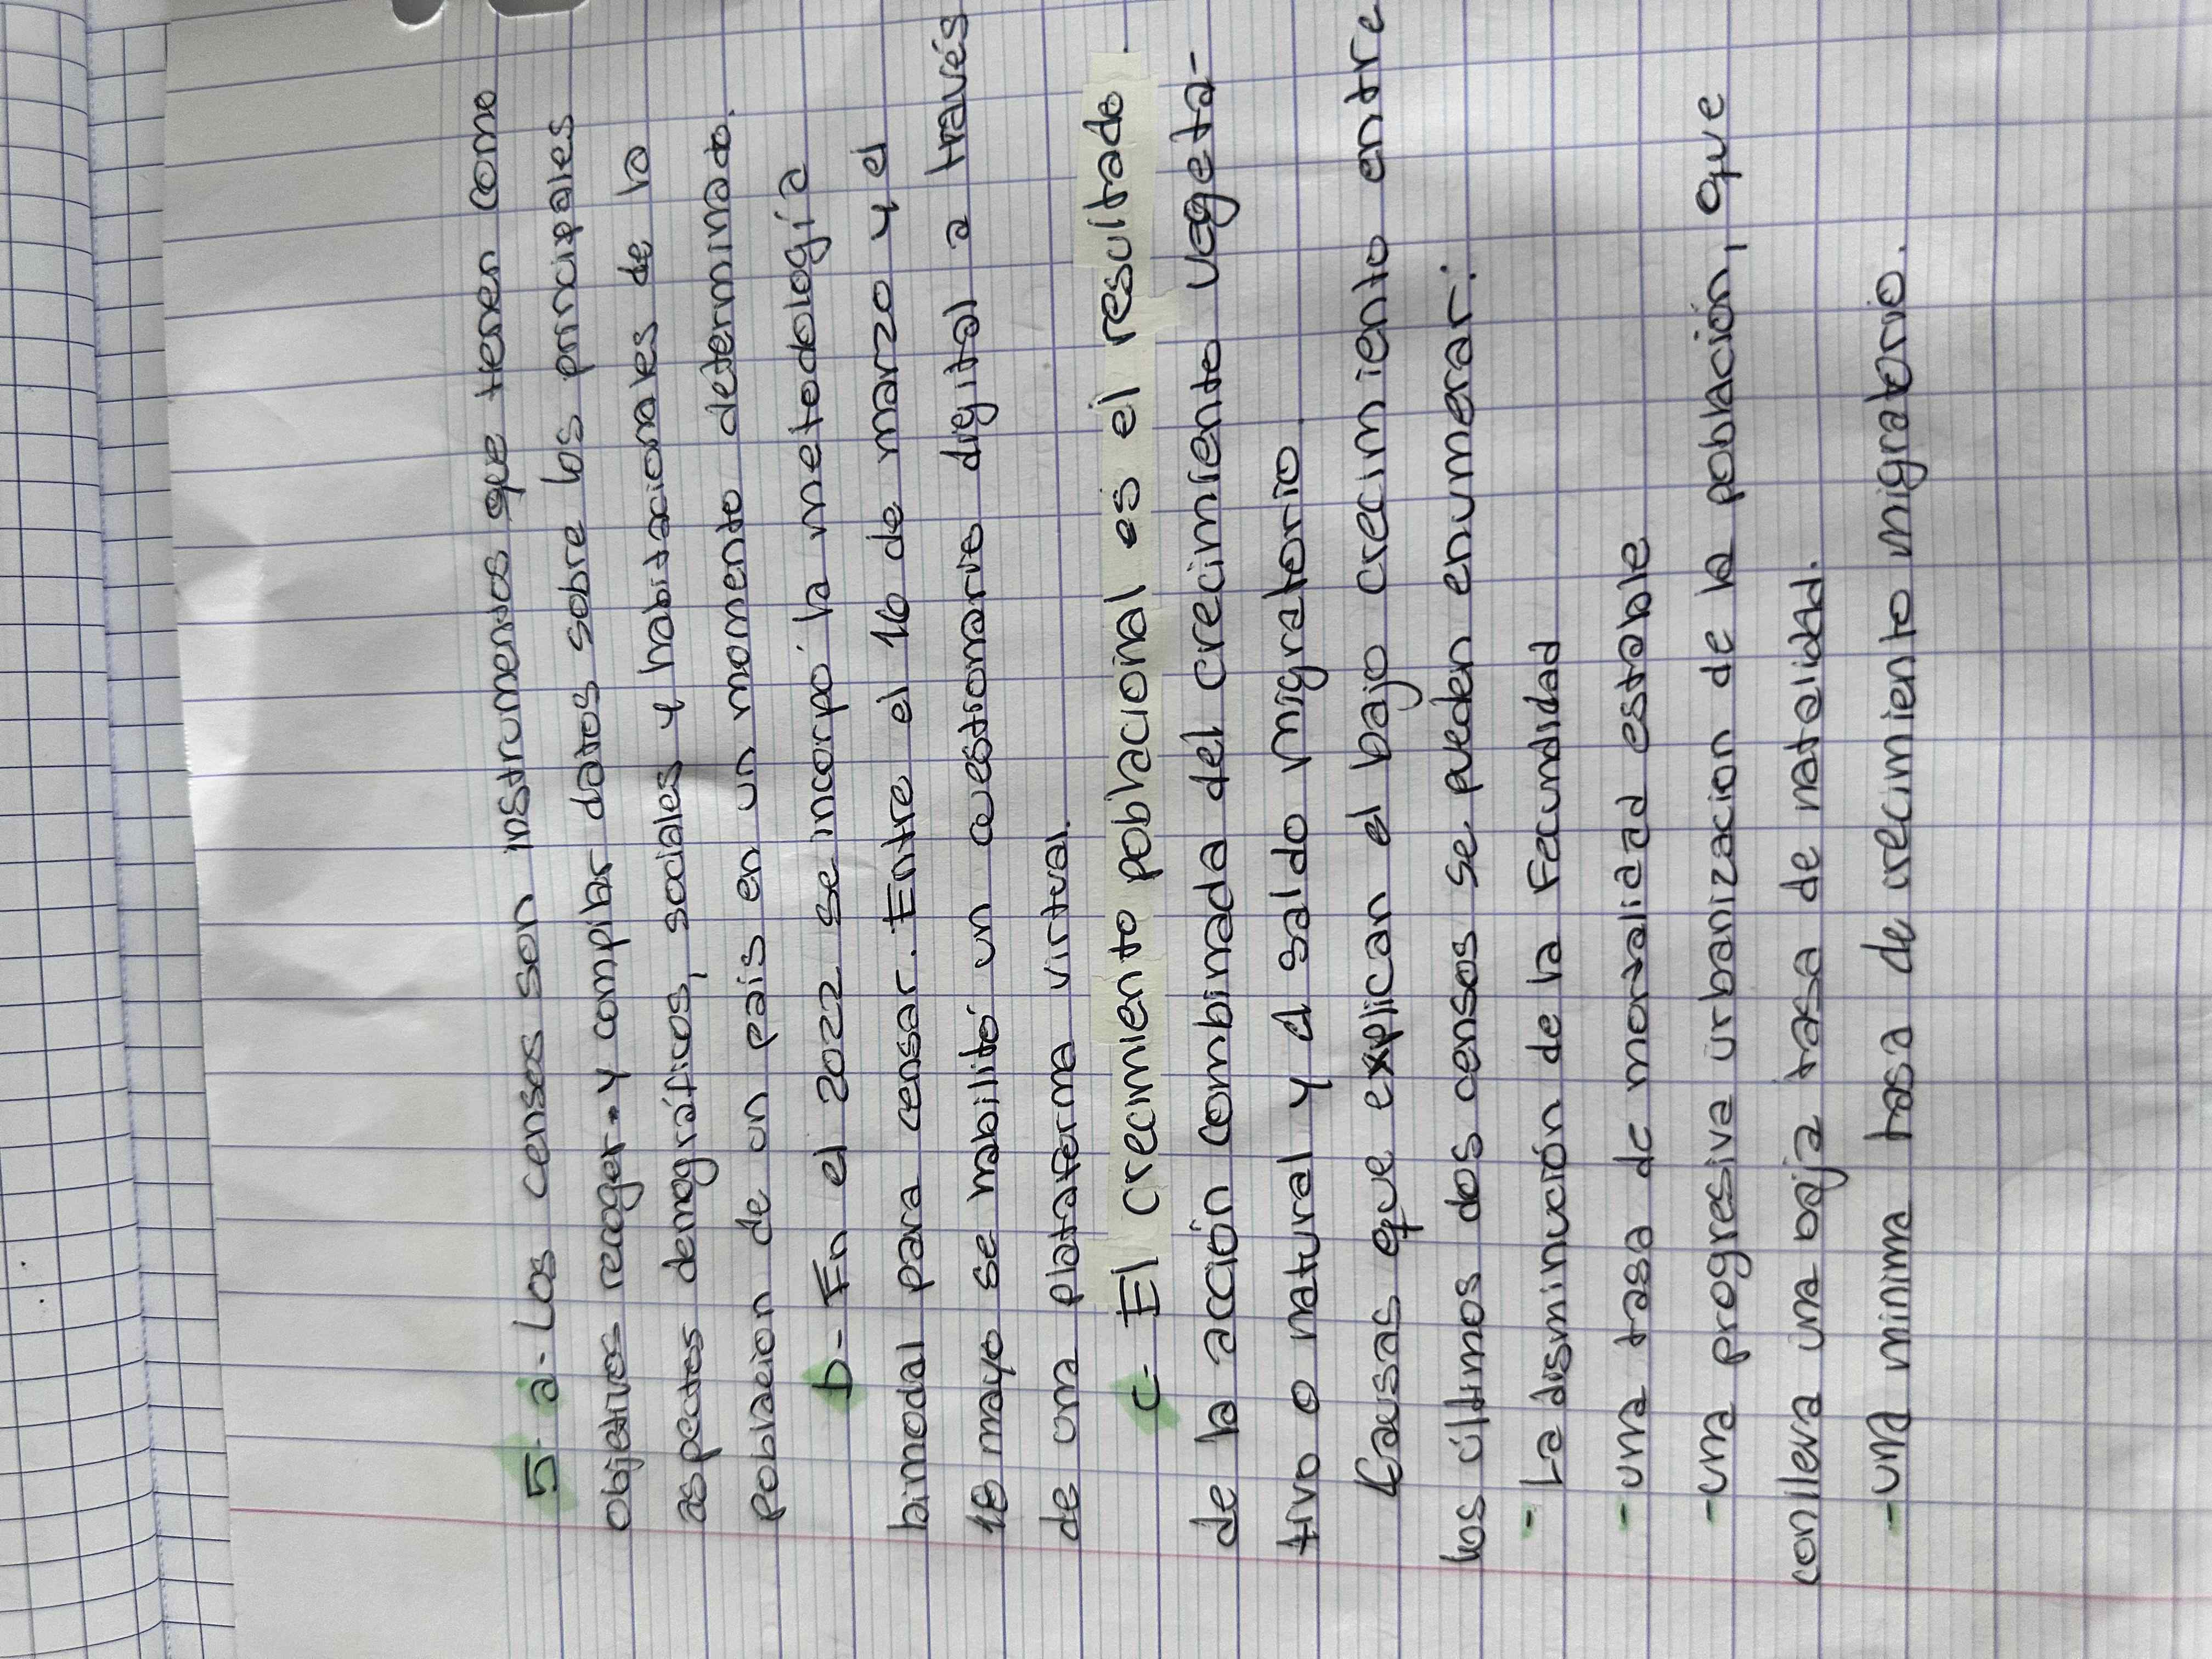 5- a- Los censos son instrumentos que tienen como
objetivos recoger y compilar datos sobre los principales
aspectos demográficos, sociales y habitacionales de la
poblacion de un pais en un momento determinado.
b- En el 2022 se incorpó la metodología
bimodal para censar. Entre el 16 de marzo y el
18 mayo se habilitó un cuestionario digital a través
de una plataforma virtual.
c- El crecimiento poblacional es el resultado
de la acción combinada del crecimiento vegeta-
tivo o natural y el saldo migratorio.
Causas que explican el bajo crecimiento entre
los últimos dos censos se pueden enumerar:
- La disminución de la Fecundidad
- una tasa de mortalidad estable
- una progresiva urbanizacion de la población, que
conlleva una baja tasa de natalidad.
- una minima tasa de crecimiento migratorio.